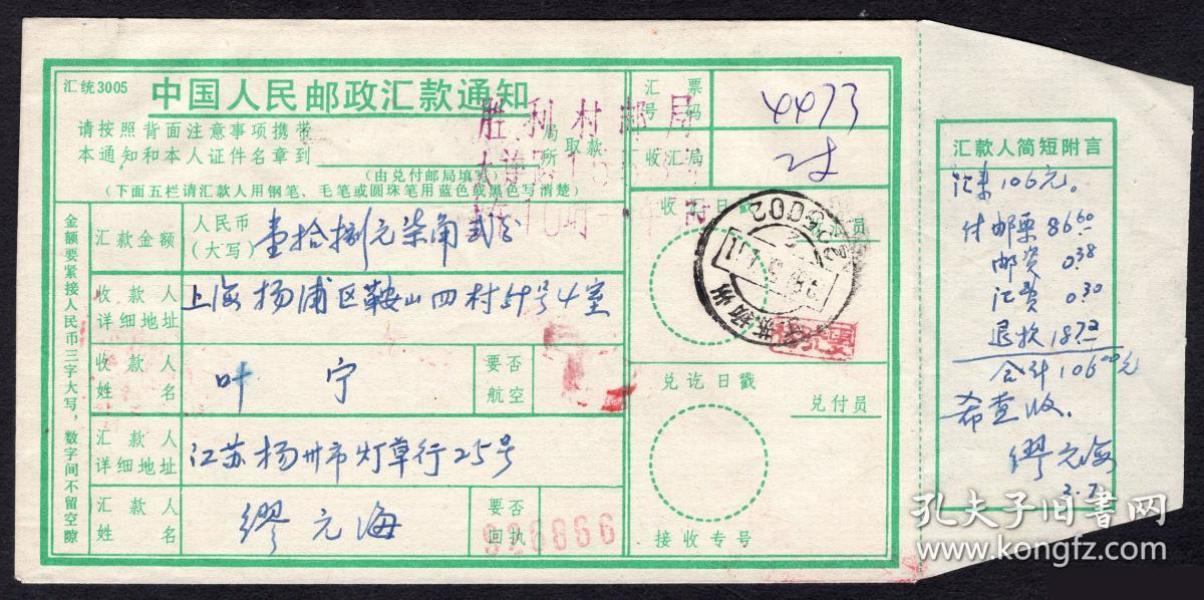 汇统3005 中国人民邮政汇款通知
请按照背面注意事项携带
本通知和本人证件名章到 局所 取款
(由兑付邮局填写)
(下面五栏请汇款人用钢笔、毛笔或圆珠笔用蓝色或黑色写清楚)
胜利村邮局
金额要紧接人民币三字大写，数字间不留空隙
汇款金额 人民币(大写) 壹拾捌元柒角贰分
收款人详细地址 上海杨浦区鞍山四村51号4室
收款人姓名 叶宁 要否航空
汇款人详细地址 江苏扬州市灯草行25号
汇款人姓名 缪元海 要否回执
926866
汇票号码 4473
收汇局
收汇日戳
225002
兑讫日戳 兑付员
接收专号
汇款人简短附言
汇来106元。
付邮票8660
邮资 0.38
汇费 0.30
退款 18.72
合计10600元
希查收.
缪元海
3.7
孔夫子旧书网
www.kongfz.com